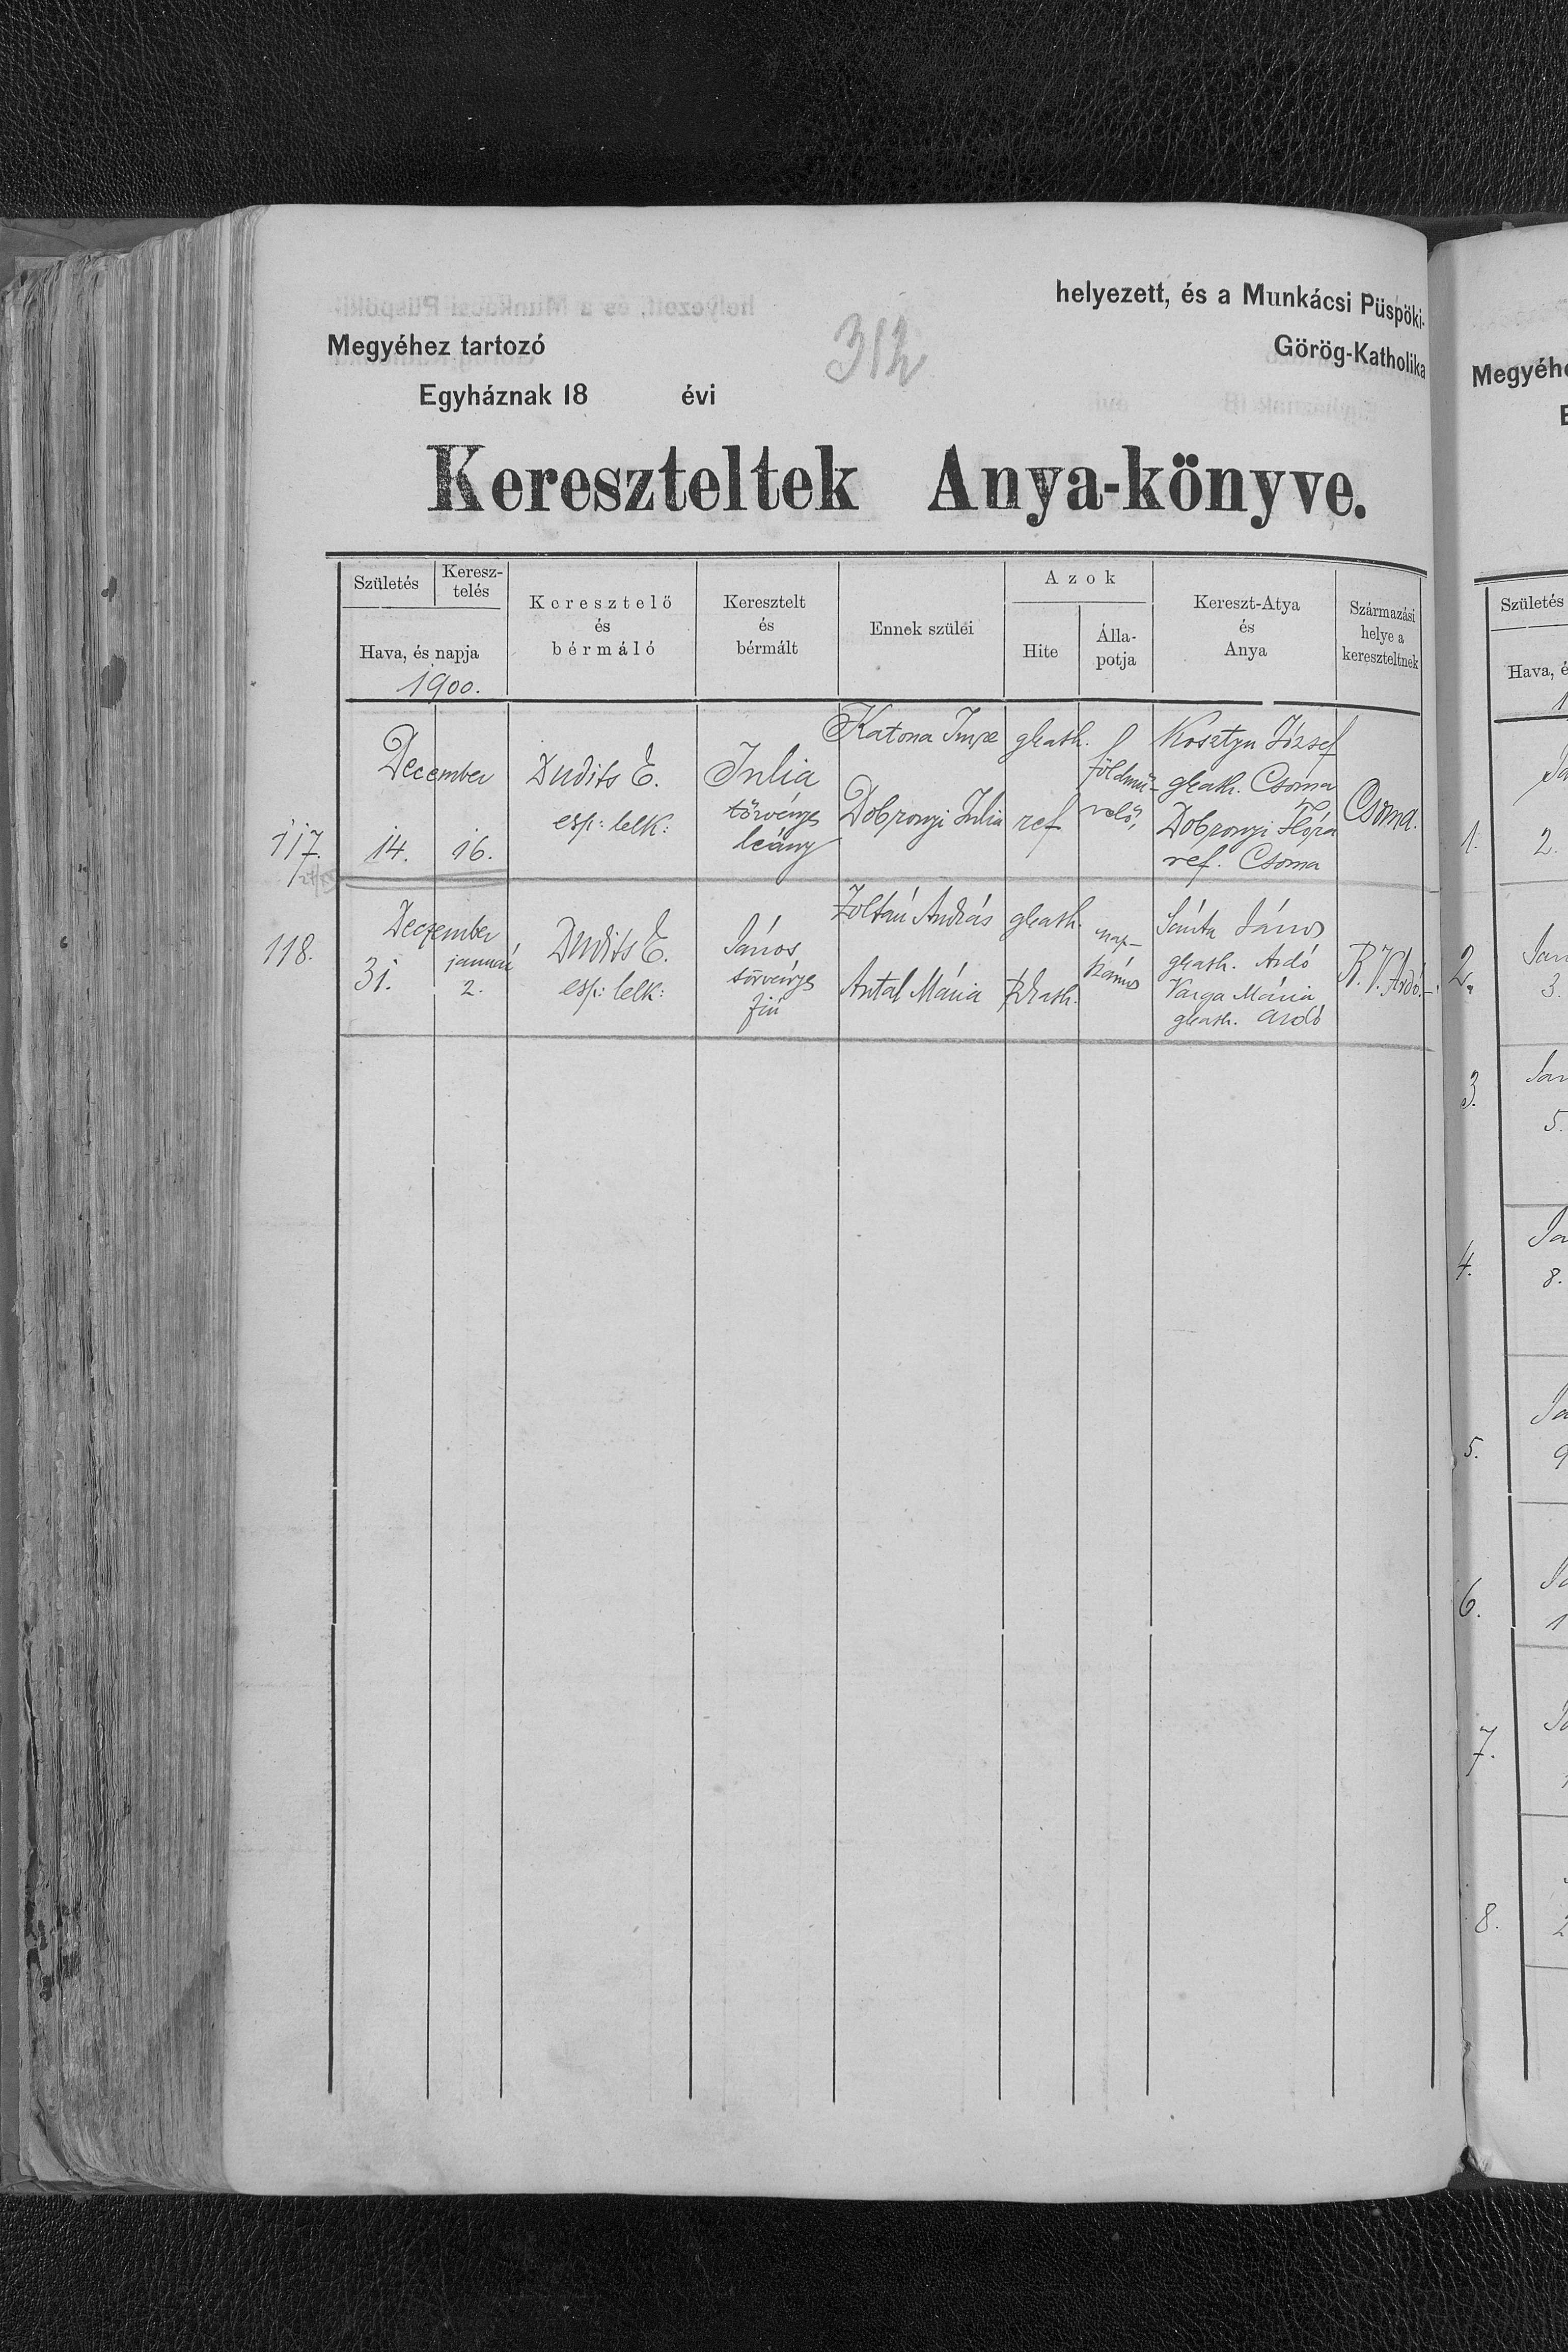 helyezett, és a Munkácsi Püspöki-
Megyéhez tartozó
312
Görög-Katholika
Egyháznak 18 évi
Kereszteltek Anya-könyve.
Születés
Keresz-
telés
Hava, és napja
1900.
Keresztelő
és
bérmáló
Keresztelt
és
bérmált
Ennek szülei
Azok
Hite
Álla-
potja
Kereszt-Atya
és
Anya
Származási
helye a
kereszteltnek
117.
December
14. 16.
Dudits E.
esp: lelk:
Julia
törvényes
leány
Katona Imre
Dobronyi Julia
gkath.
ref
földmű-
velő,
Kosztyu József
gkath. Csoma
Dobronyi Flóra
ref. Csoma
Csoma.
118.
Deczember
31.
január
2.
Dudits E.
esp: lelk:
János
törvényes
fiú
Zoltán András
Antal Mária
gkath.
Rkath.
nap-
számos
Sánta János
gkath. Ardó
Varga Mária
gkath. Ardó
B. V. Ardó.
Megyéhe
Születés
Hava, é
1.
2.
2.
Jan
3.
3.
Jan
5.
4.
Ja
8.
5.
Ja
9
6.
7.
8.